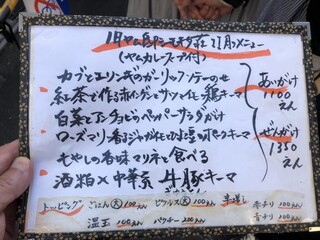 11月メニュー
(ヤムカレースープ付)
カブとエリンギのガーリックソテーのせ
紅茶と作る赤インゲンとサツマイモ鶏キーマ
白菜とアンチョビペッパーサラダがけ
ローズマリー香るジャガイモとひよこ豆のポークキーマ
もやしの香味マリネと食べる
酒粕×中華系 牛豚キーマ
あいがけ
1100
えん
ぜんがけ
1350
えん
トッピング ごはん大 100えん ピクルス大 100えん 辛増し 赤チリ 100えん
温玉 100えん パクチー 200えん 青チリ 100えん